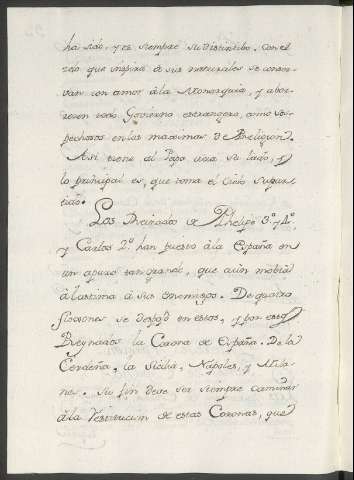 ha sido, y es siempre su distintibo. con el
zelo que inspira á sus naturales se conser-
van con amor á la Monarquia, y abor-
recen todo Govierno estrangero, como sos-
pechoso en las maximas de Religion.
Asi tiene al Papa de su lado, y
lo principal es, que toma el Cielo su par-
tido.
Los Reinados de Phelipe 3.º y 4.º
y Carlos 2.º han puesto á la España en
un apuro tan grande, que aun mobia
á lastima á sus enemigos. De quatro
florones se despojó en estos, y por estos
Reynados la Corona de España. De la
Cerdeña, la Sicilia, Napoles, y Mila-
nes. Su fin debe ser siempre caminar
á la restitucion de estas Coronas, que